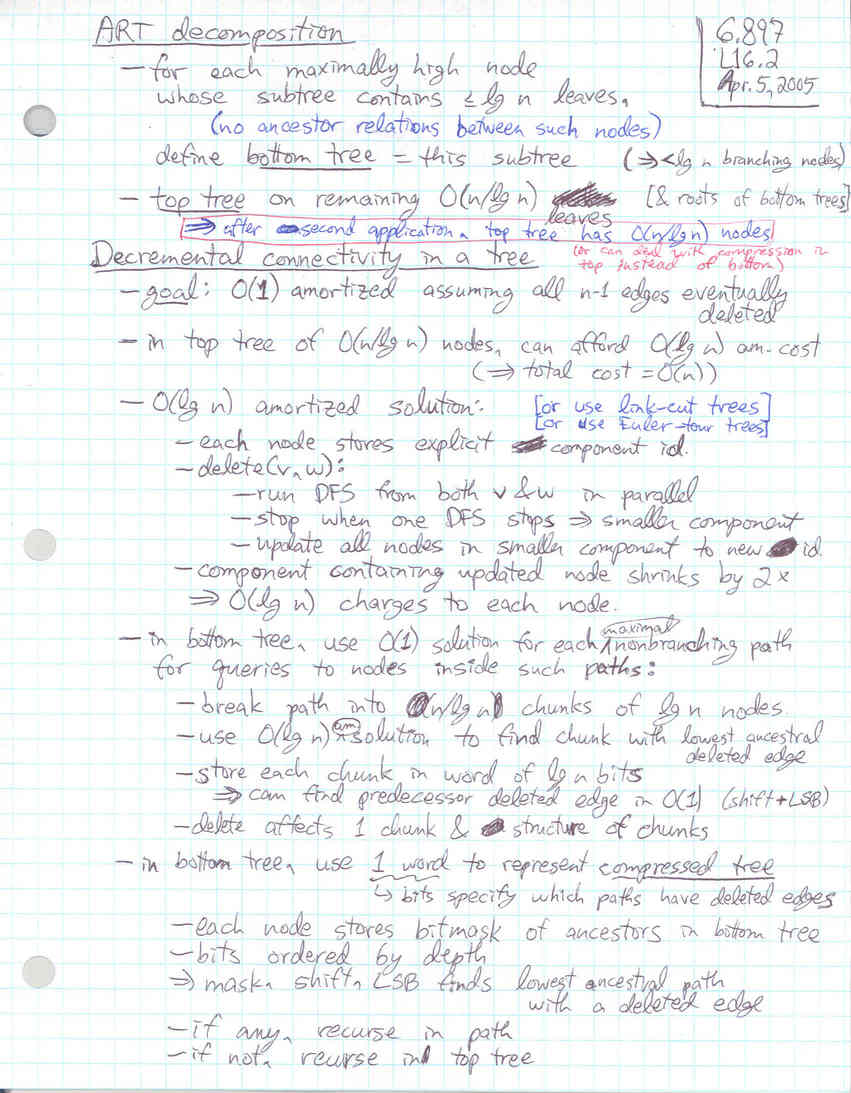 ART decomposition
6.897
L16.2
Apr. 5, 2005
– for each maximally high node
whose subtree contains ≤ lg n leaves,
(no ancestor relations between such nodes)
define bottom tree = this subtree (⇒ < lg n branching nodes)
– top tree on remaining O(n/lg n) leaves [& roots of bottom trees]
⇒ after second application, top tree has O(n/lg n) nodes
(or can deal with compression in
top instead of bottom)
Decremental connectivity in a tree
– goal: O(1) amortized assuming all n-1 edges eventually
deleted
– in top tree of O(n/lg n) nodes, can afford O(lg n) am. cost
(⇒ total cost = O(n))
– O(lg n) amortized solution: [or use link-cut trees]
[or use Euler-tour trees]
– each node stores explicit component id.
– delete(v, w):
– run DFS from both v & w in parallel
– stop when one DFS stops ⇒ smaller component
– update all nodes in smaller component to new id
– component containing updated node shrinks by 2x
⇒ O(lg n) charges to each node.
– in bottom tree, use O(1) solution for each maximal nonbranching path
for queries to nodes inside such paths:
– break path into n/lg n chunks of lg n nodes.
– use O(lg n) am. solution to find chunk with lowest ancestral
deleted edge
– store each chunk in word of lg n bits
⇒ can find predecessor deleted edge in O(1) (shift+LSB)
– delete affects 1 chunk & structure of chunks
– in bottom tree, use 1 word to represent compressed tree
↳ bits specify which paths have deleted edges
– each node stores bitmask of ancestors in bottom tree
– bits ordered by depth
⇒ mask, shift, LSB finds lowest ancestral path
with a deleted edge
– if any, recurse in path
– if not, recurse in top tree